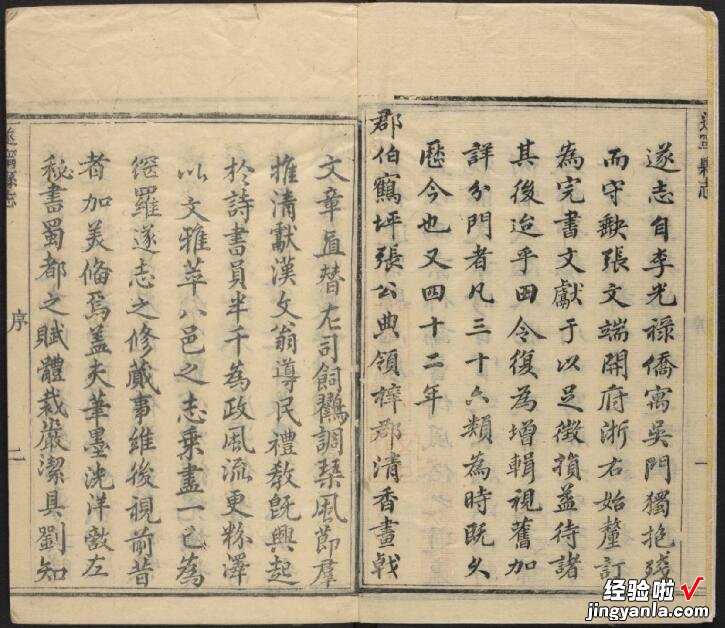 遂寧縣志
遂志自李光祿僑寓吳門獨抱殘
而守缺張文端開府浙右始釐訂
為完書文獻于以足徵損益待諸
其後迨乎田令復為增輯視舊加
詳分門者凡三十六類為時既久
歷今也又四十二年
郡伯鶴坪張公典領梓郡清香畫戟
序
一
文章直替左司飼鸛調琴風節羣
推清獻漢文翁導民禮教既興起
於詩書員半千為政風流更粉澤
以文雅萃八邑之志乘盡一己為
網羅遂志之修蕆事維後視前昔
者加美備焉蓋夫筆墨洸洋敵左
秘書蜀都之賦體裁嚴潔具劉知
遂寧縣志
序
二
经验啦√
jingyanla.com